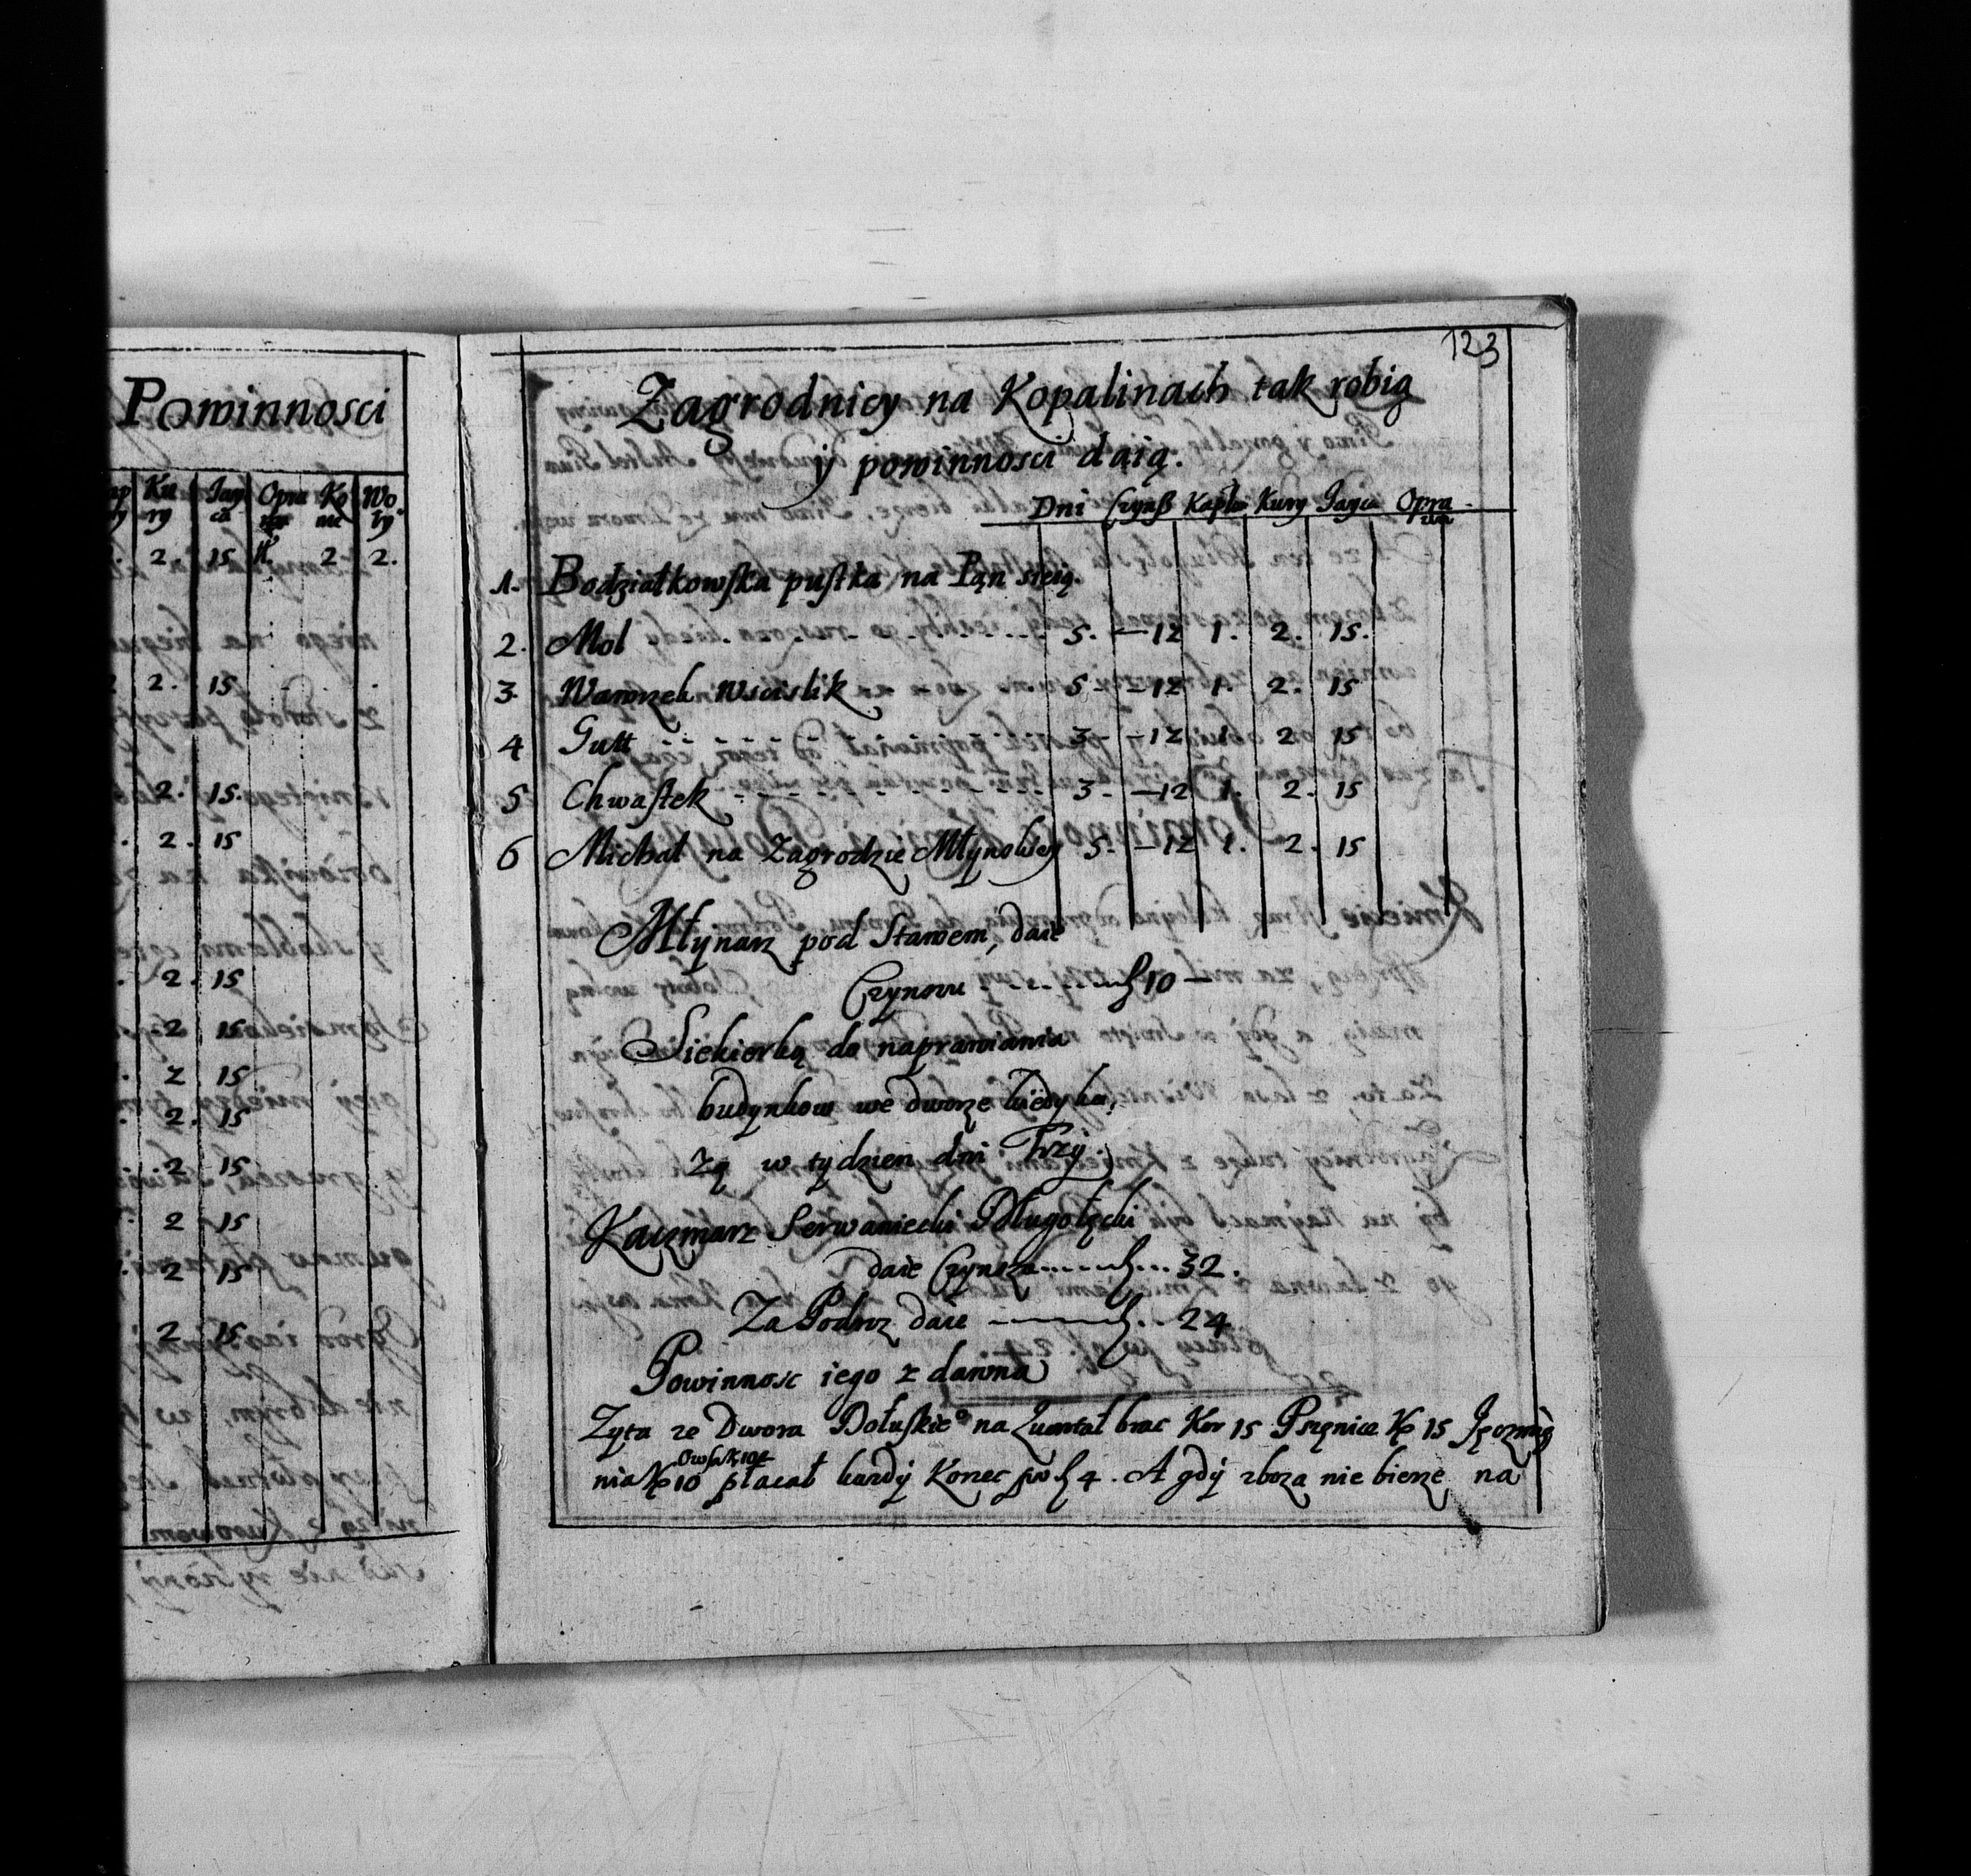 Powinnosci
Ku Jay Opra Ko Wo
ry ca wa nie ły
2. 15 2 2.
2. 15
2. 15.
2. 15
2. 15
2 15
2 15
2. 15
2 15
2 15
2 15
2 15
123
Zagrodnicy na Kopalinach tak robią
ÿ powinnosci daią.
Dni Czynß Kapłon Kury Jayca Opra
wa
1. Bodziałkowska pustka na Pan sieią.
2. Mol - - - - 5. — 12 1. 2. 15.
3. Wawrzek Wscislik 5 - — 12 1. 2. 15
4 Gutt - - - - 3 - — 12 1. 2 15
5 Chwastek - - - - 3 - — 12 1. 2. 15
6 Michał na Zagrodzie Młynowey 5. — 12 1. 2. 15
Młynarz pod Stawem, daie
Czynszu - - - - fl 10 —
Siekierką do naprawiania
budynkow we dworze kiedy ka,
żą w tydzien dni Trzy.
Kaczmarz Serwaniecki Długołęcki
daie Czynszu ..... fl ... 32.
Za Podwoz daie — fl .. 24
Powinnosc iego z dawna
Zyta ze Dwora Dołuskieo na kwartał brac Kor 15 Pszenice K 15 Jęczmię
Owsa K 10
nia K 10 płacał kazdÿ Korzec po fl 4. A gdÿ zboza nie bierze na